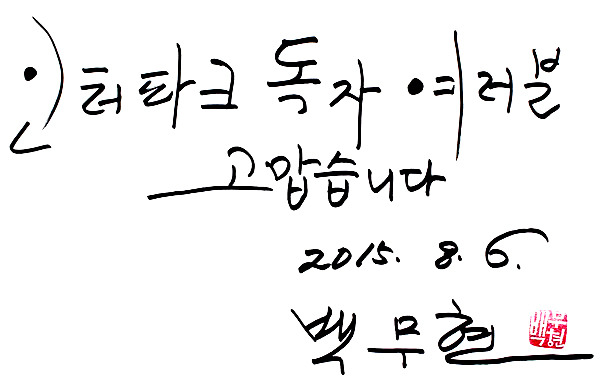 인터파크 독자 여러분
고맙습니다
2015. 8. 6.
백무현
백무현